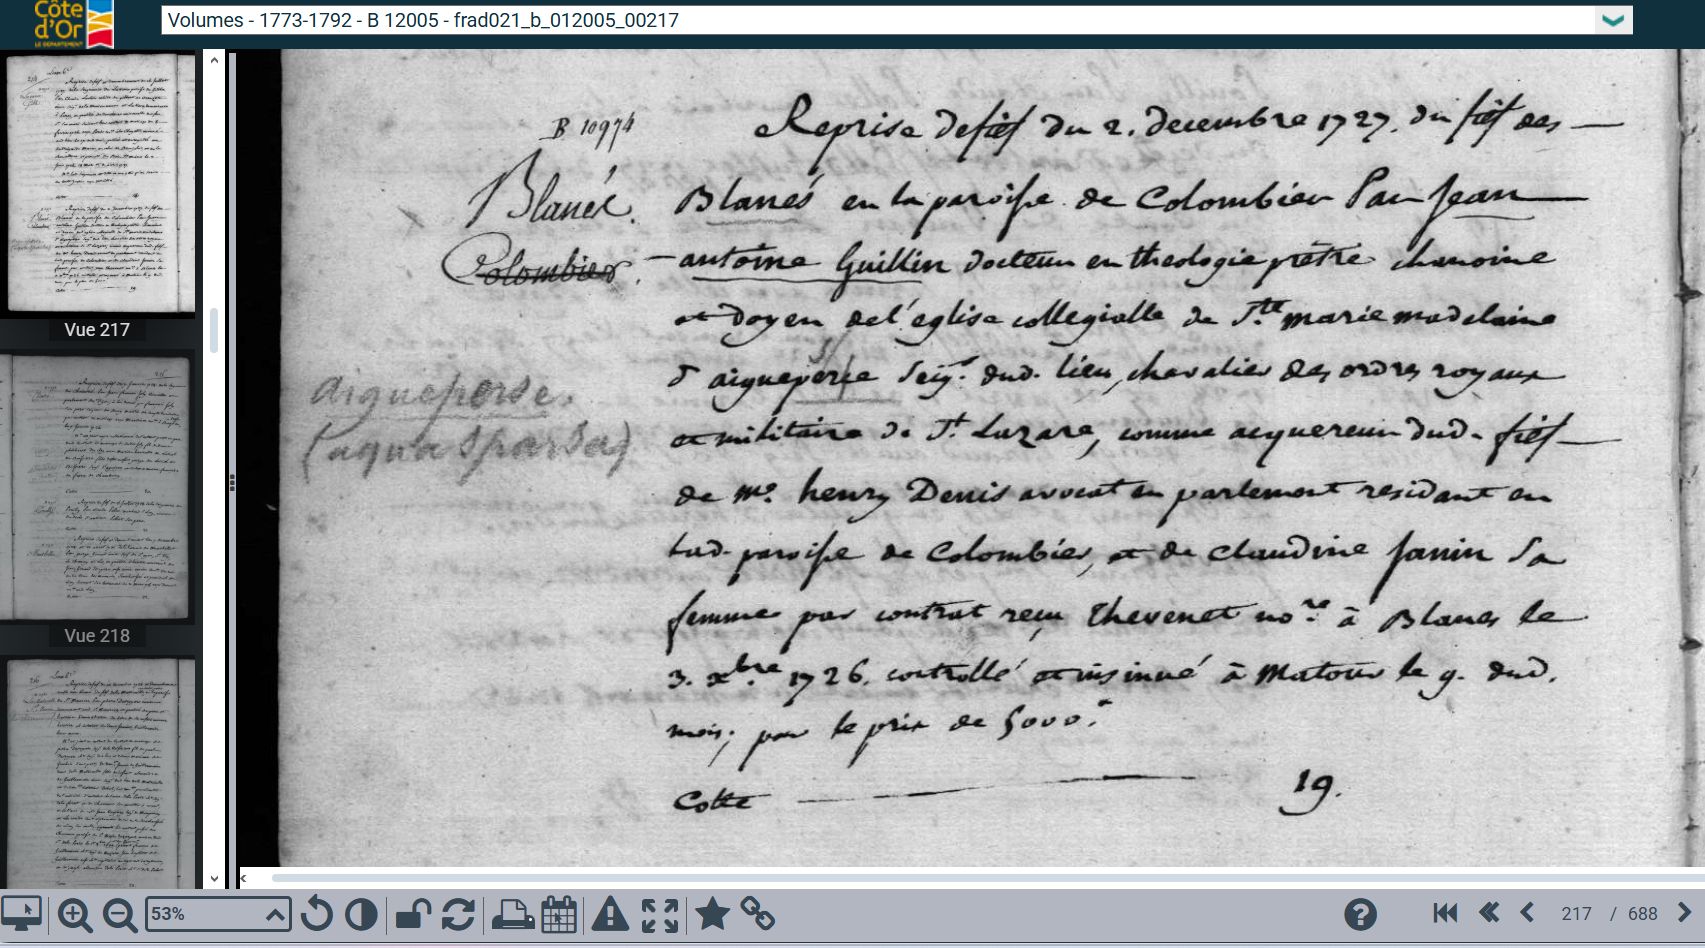 Côte
d'Or
LE DÉPARTEMENT
Volumes - 1773-1792 - B 12005 - frad021_b_012005_00217
Vue 217
Vue 218
B 10974
Blanés.
Colombier.
aigueperse.
(aqua sparsa)
Reprise de fief du 2. decembre 1727. du fief des
Blanés en la paroisse de Colombier Par Jean
antoine Guillin docteur en theologie prêtre chanoine
et doyen de l'eglise collegialle de Ste marie madelaine
d'aigueperse seigr. dud. lieu, chevalier des ordres royaux
et militaire de St. Lazare, comme acquereur dud. fief
de me. henry Denis avocat en parlement residant en
lad. paroisse de Colombier, et de claudine Janin sa
femme par contrat reçu Thevenet nore. à Blanes le
3. xbre 1726. controllé et insinué à Matour le 9. dud.
mois, pour le prix de 5000.
Cotte 19.
53%
217 / 688